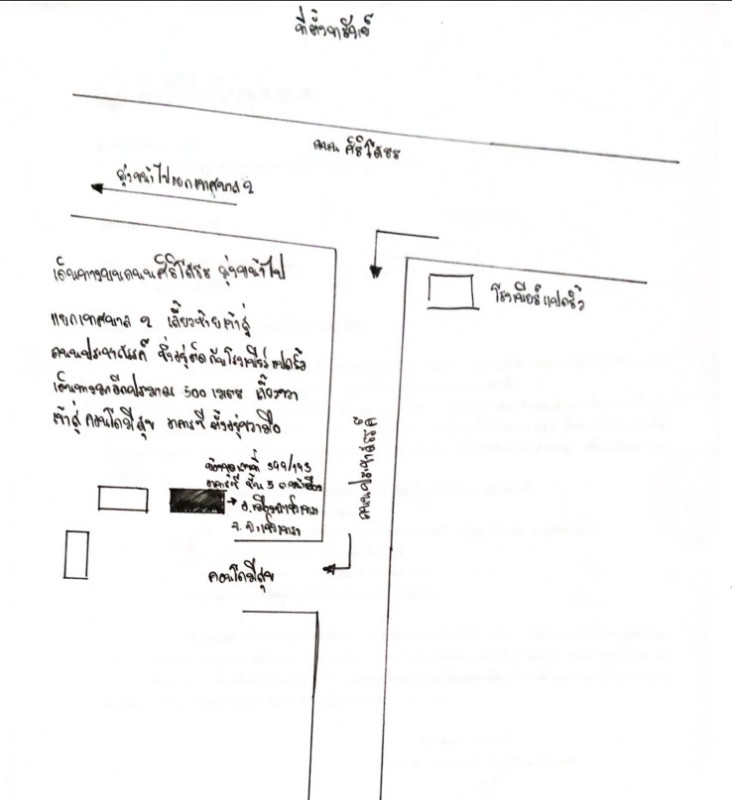 ที่ตั้งทรัพย์
ถนน ศิริโสธร
มุ่งหน้าไปแยกเทศบาล 2
เดินทางบนถนนศิริโสธร มุ่งหน้าไป
แยกเทศบาล 2 เลี้ยวซ้ายเข้าสู่
ถนนประชาสรรค์ ซึ่งอยู่ติดกับโรงเบียร์แปดริ้ว
เดินทางอีกประมาณ 500 เมตร เลี้ยวขวา
เข้าสู่ คอนโดมีสุข อาคารซี ตั้งอยู่ขวามือ
โรงเบียร์แปดริ้ว
ถนนประชาสรรค์
ห้องชุดเลขที่ 399/193
อาคารซี ชั้น 5 ต.หน้าเมือง
อ.เมืองฉะเชิงเทรา
จ.ฉะเชิงเทรา
คอนโดมีสุข